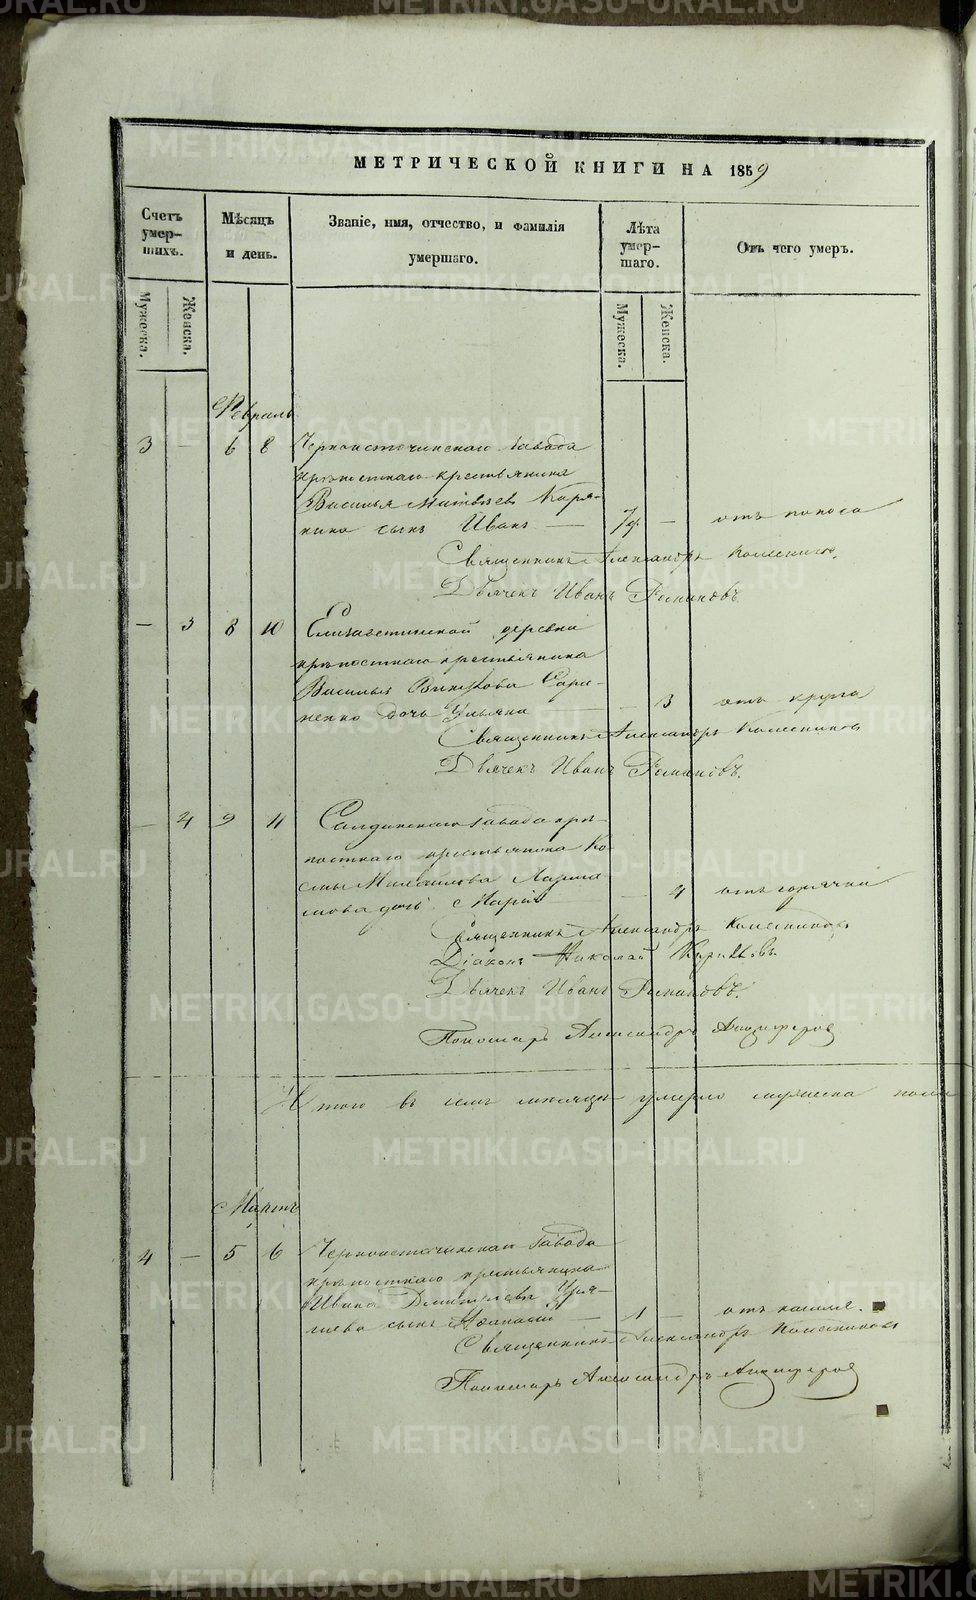 МЕТРИЧЕСКОЙ КНИГИ НА 1859
Счетъ умер-шихъ.
Мужеска.
Женска.
Мѣсяцъ и день.
Званіе, имя, отчество, и фамилія умершаго.
Лѣта умер-шаго.
Мужеска.
Женска.
Отъ чего умеръ.
Февраль
3 — 6 8 Черноисточинскаго завода
крѣпостнаго крестьянина
Василья Матвѣева Каря-
кина сынъ Иванъ — — отъ поноса
Священникъ Александръ Колесниковъ
Дьячекъ Иванъ Романовъ
— 3 8 10 Елизаветинской деревни
крѣпостнаго крестьянина
Василья
дочь Ульяна — 3
Священникъ Александръ Колесниковъ
Дьячекъ Иванъ Романовъ.
— 4 9 11 Салдинскаго завода крѣ-
постнаго крестьянина Ко-
смы Михайлова
дочь Марія — 4 отъ горячки
Священникъ Александръ Колесниковъ
Діаконъ Николай
Дьячекъ Иванъ Романовъ.
Пономарь Александръ
Итого въ семъ мѣсяцѣ умерло мужеска пола
Мартъ
4 — 5 6 Черноисточинскаго завода
крѣпостнаго крестьянина
Ивана
сынъ — 1 — отъ кашля.
Священникъ Александръ Колесниковъ
Пономарь Александръ
METRIKI.GASO-URAL.RU